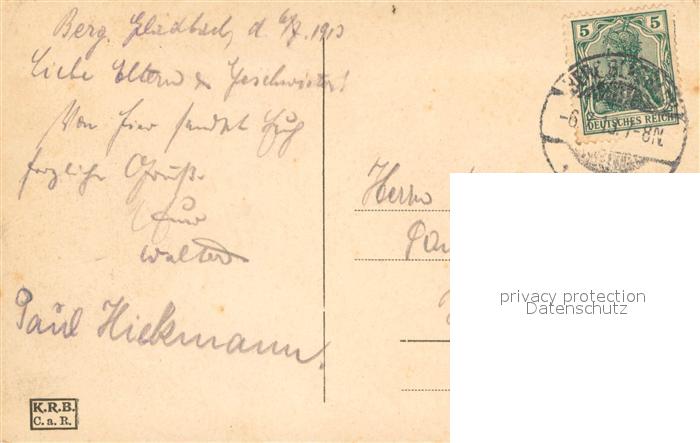 Berg. Gladbach, d. 6/7. 1913
Liebe Eltern & Geschwister!
Von hier sendet Euch
herzliche Grüße
Euer
Walter
Paul Hickmann.
K.R.B.
C.a.R.
5 5
DEUTSCHES REICH
7-8N.
Herrn
privacy protection
Datenschutz